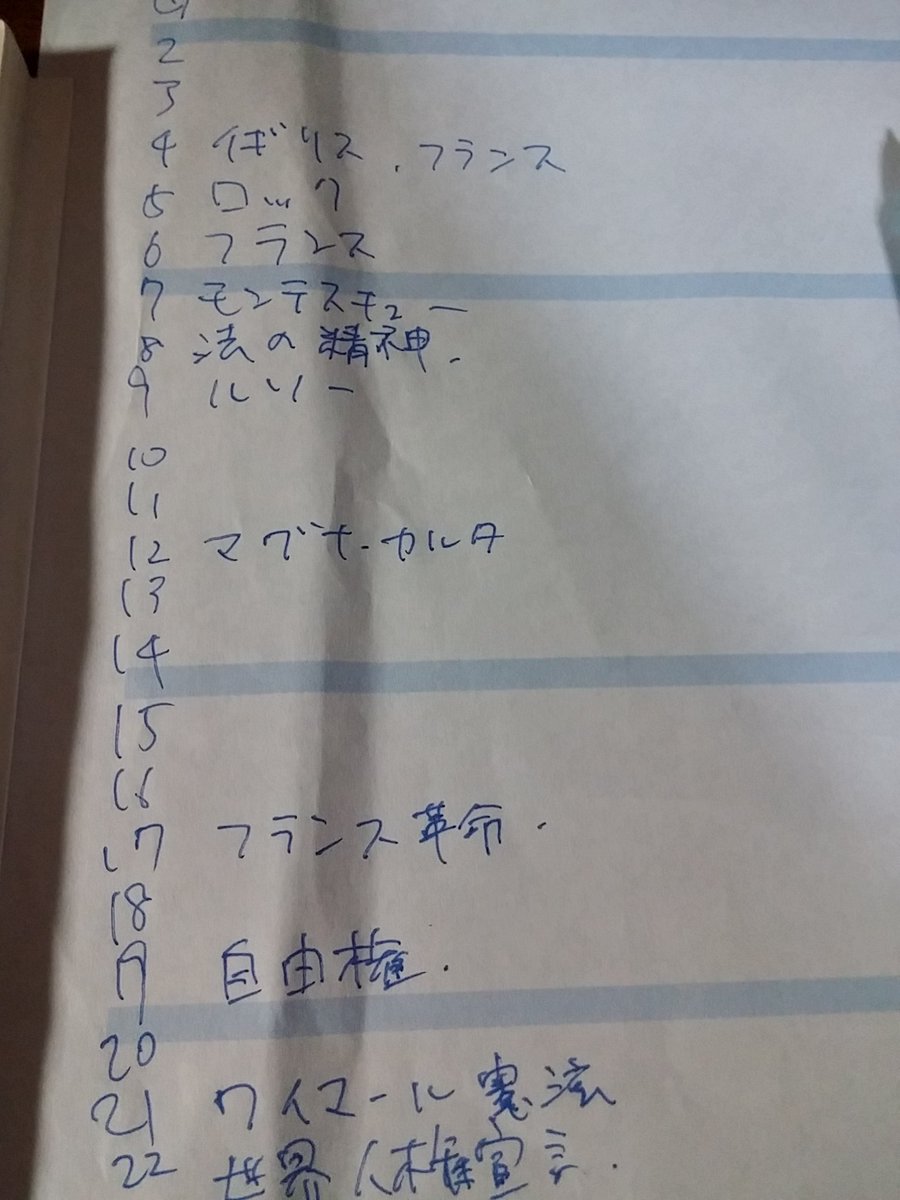 2
3
4 イギリス.フランス
5 ロック
6 フランス
7 モンテスキュー
8 法の精神.
9 ルソー
10
11
12 マグナ-カルタ
13
14
15
16
17 フランス革命.
18
19 自由権.
20
21 ワイマール憲法
22 世界人権宣言.